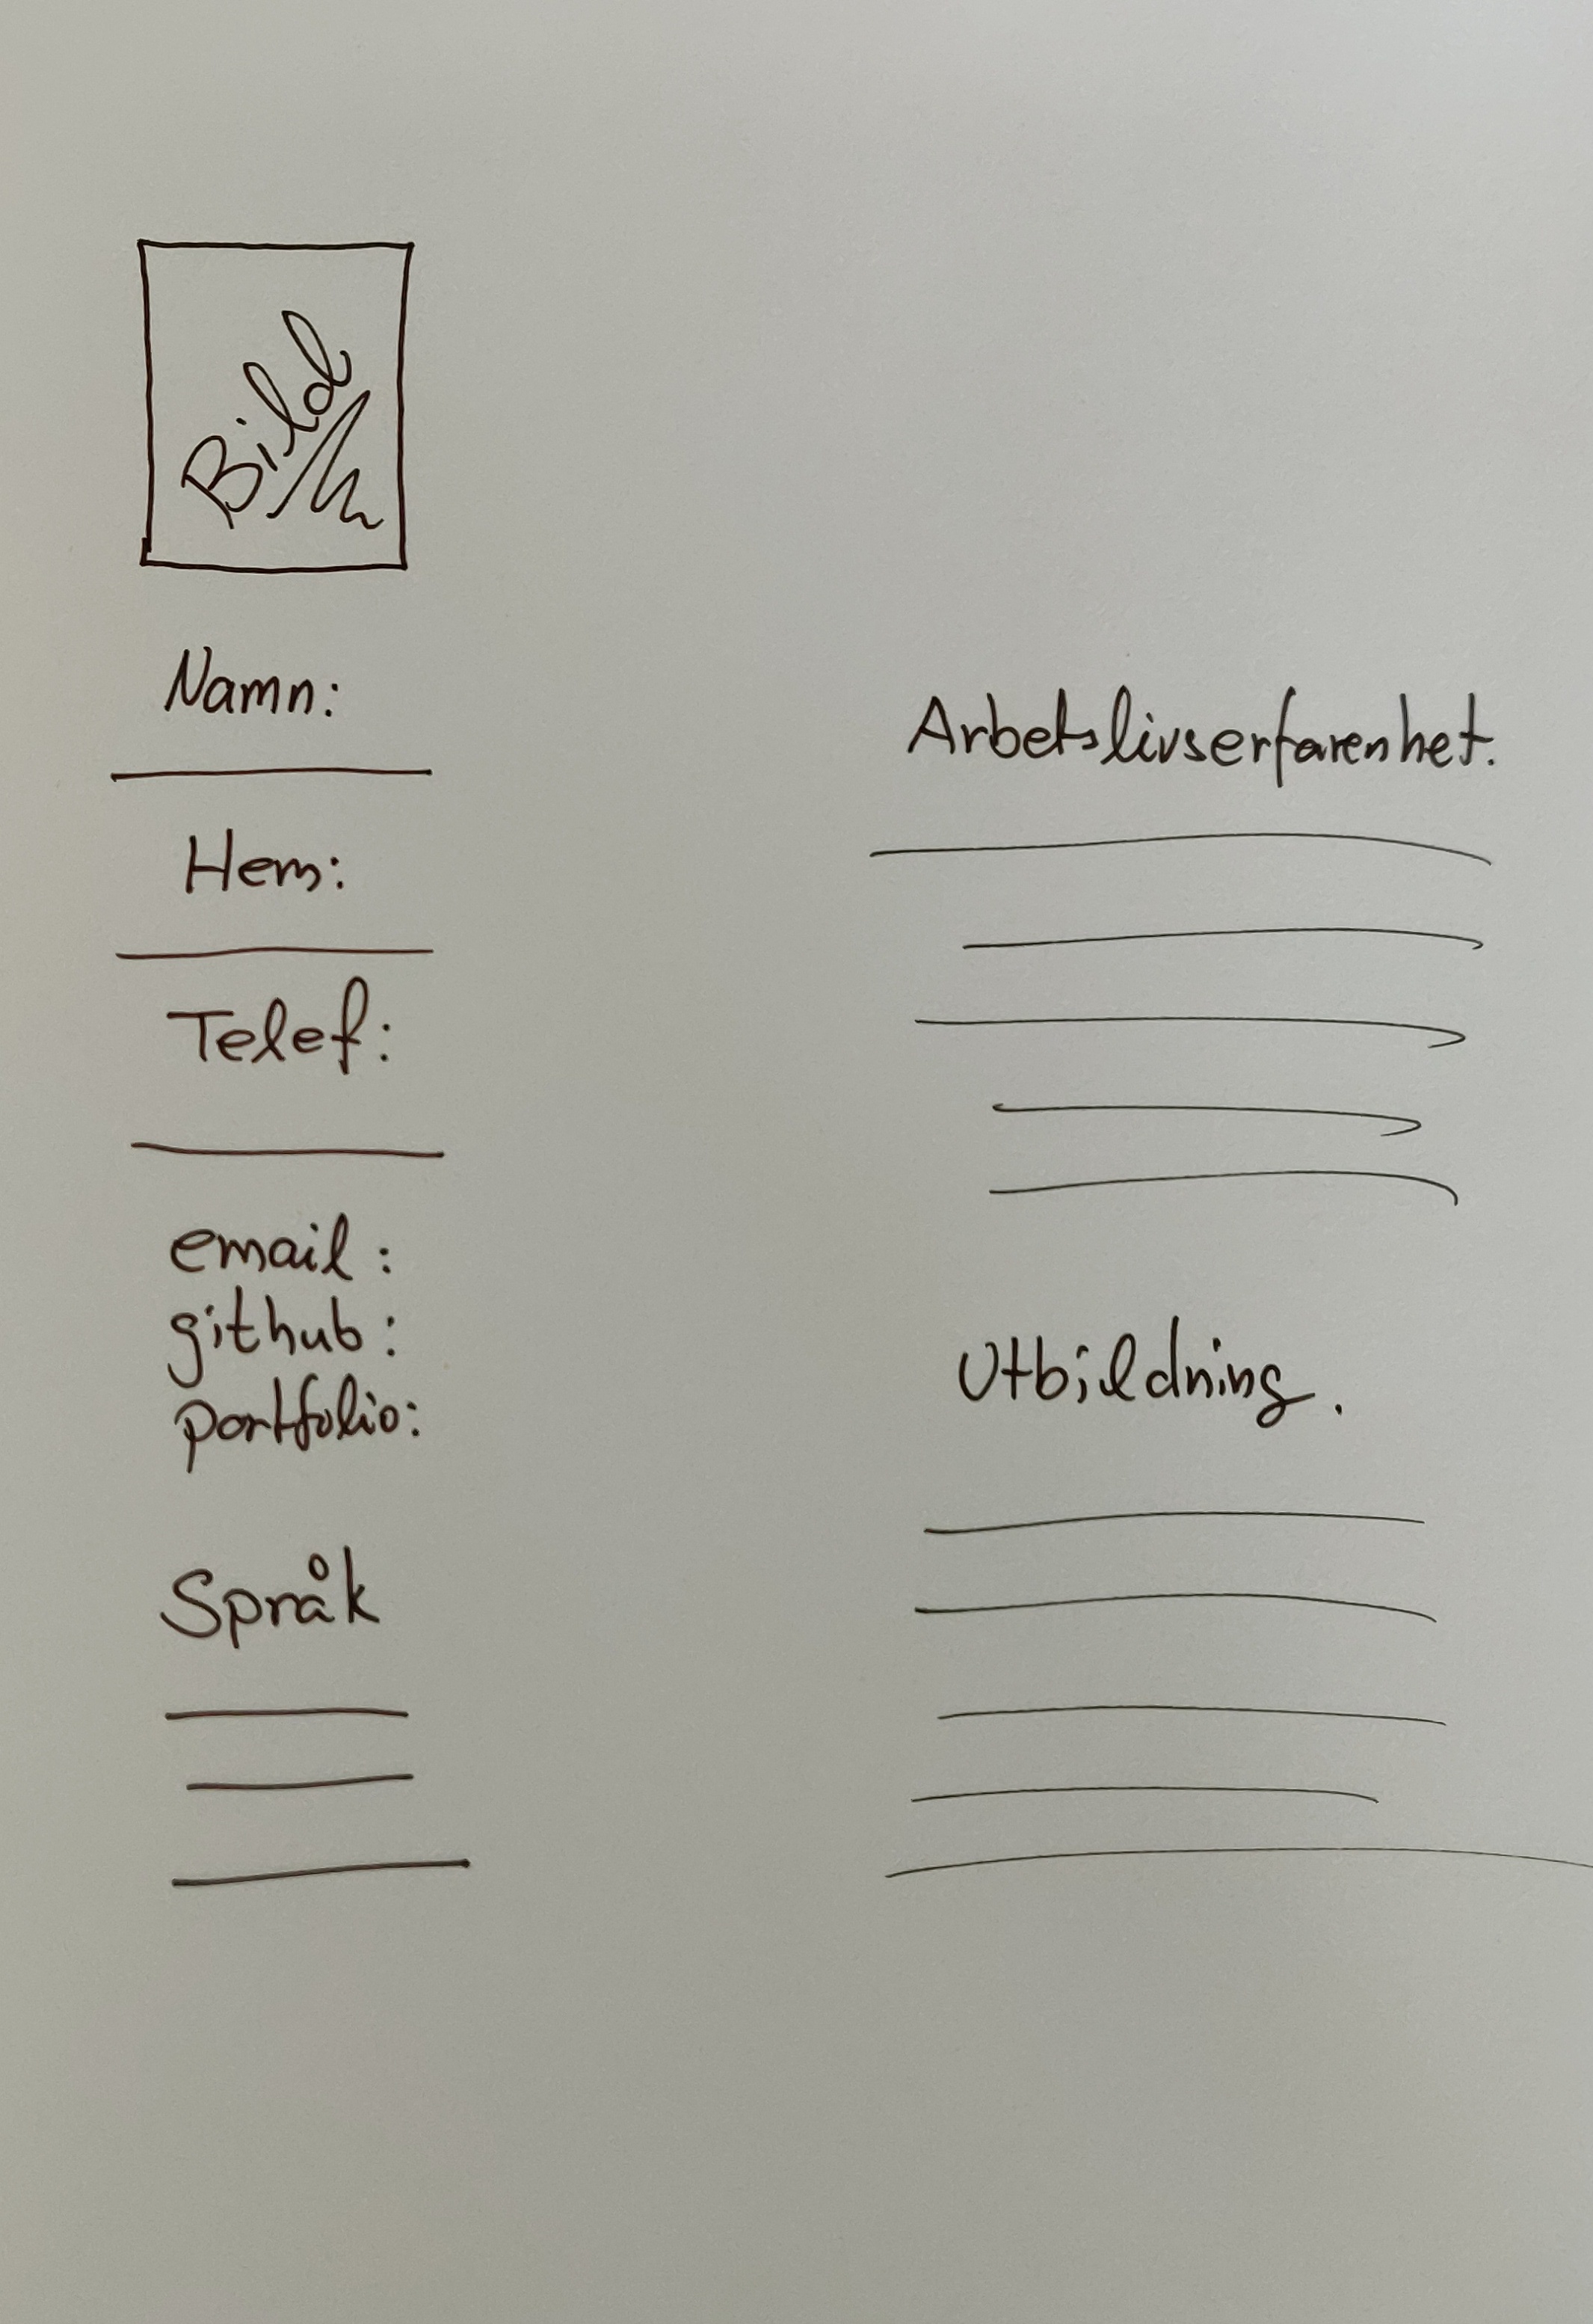 Bild
Namn:
Hem:
Telef:
email:
github:
portfolio:
Språk
Arbetslivserfarenhet.
Utbildning.